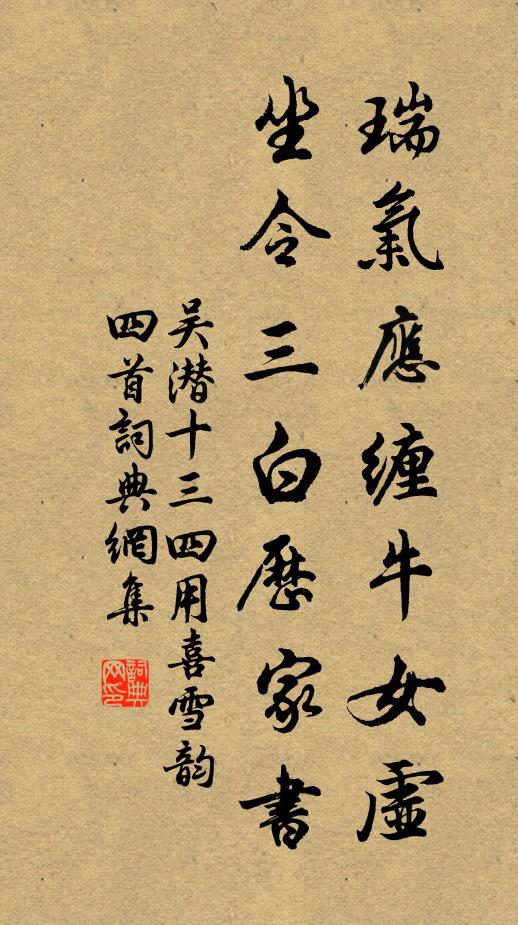 瑞氣應纏牛女虛
坐令三白歷家書
吴潜十三四用喜雪韵
四首詞典網集
詞典网印